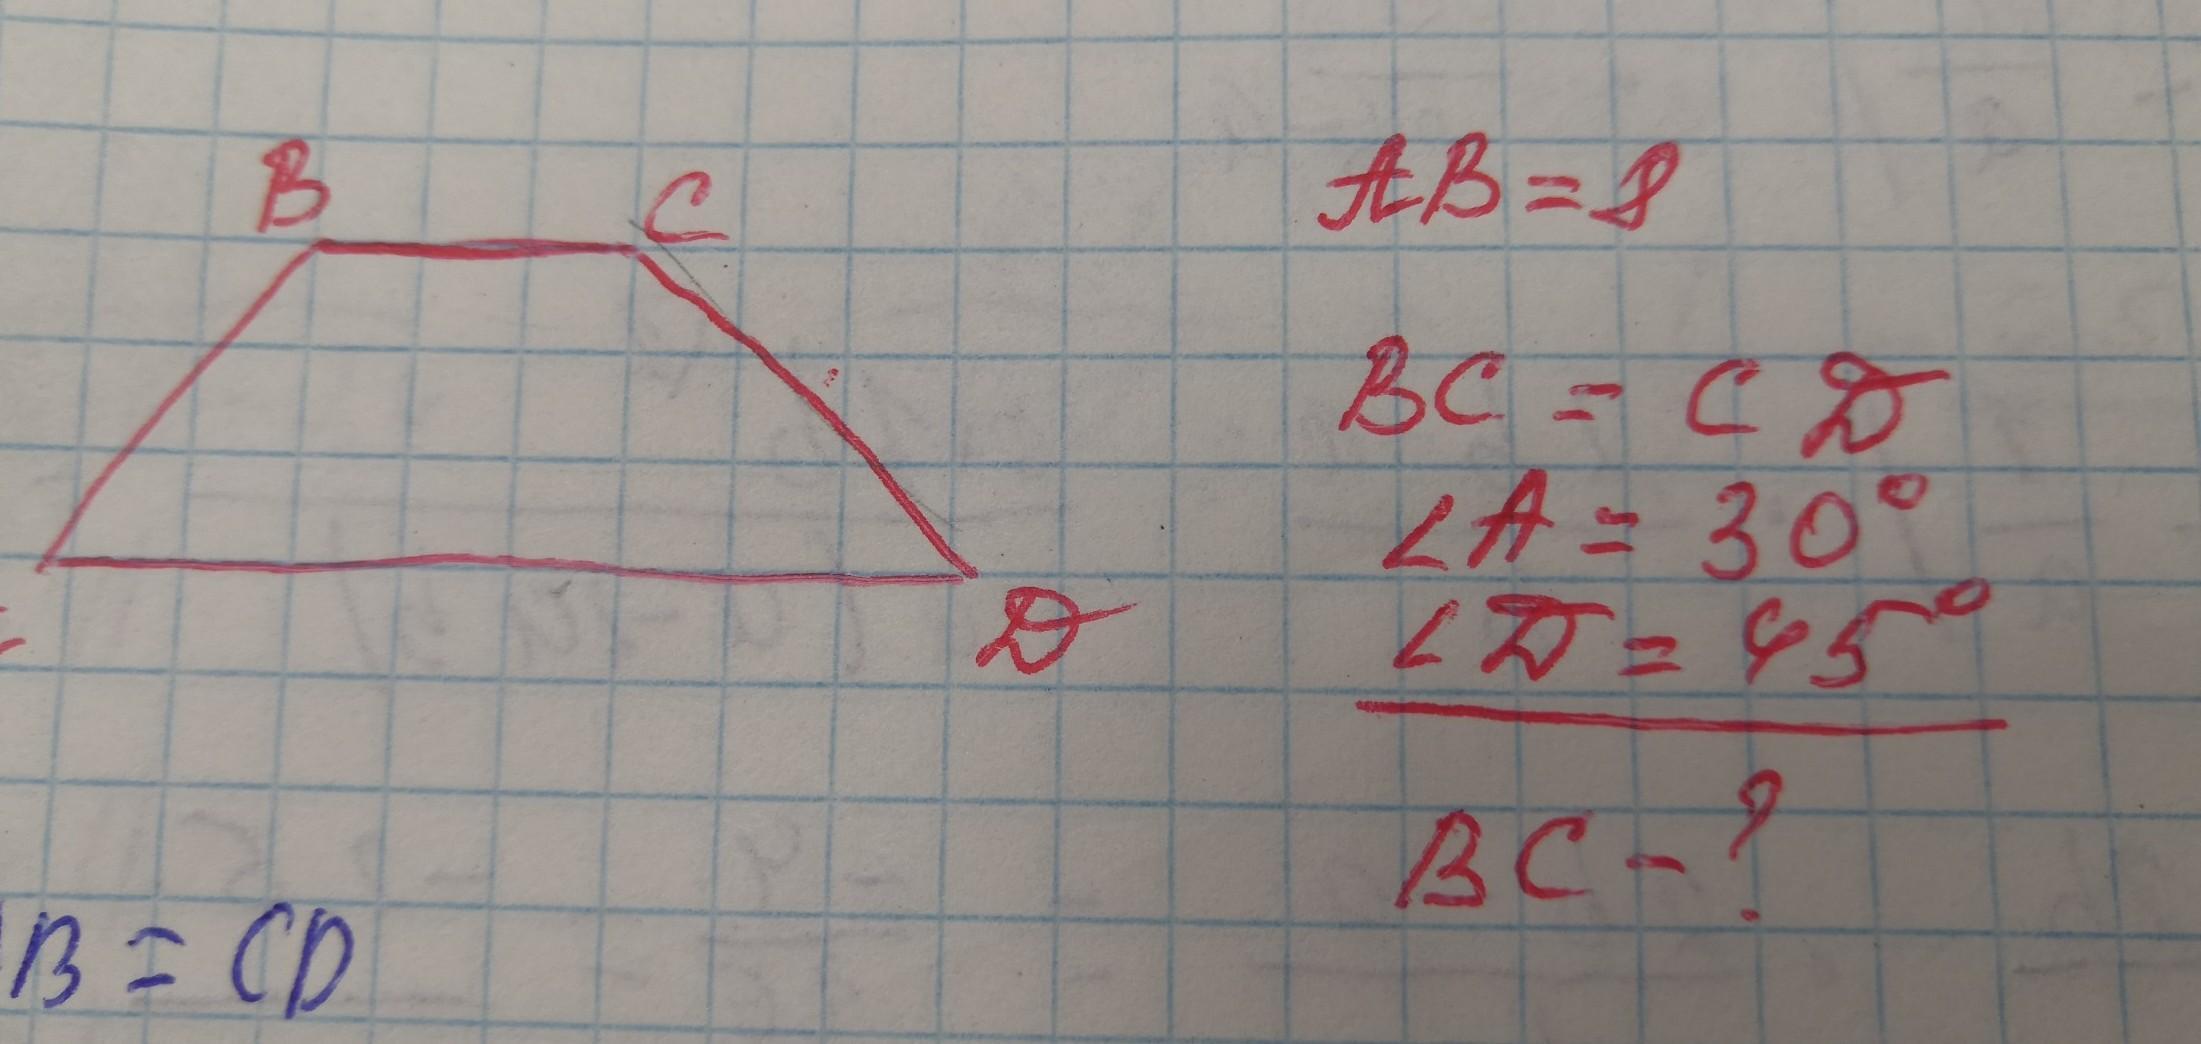 B
C
AB = 8
BC = CD
∠A = 30°
∠D = 45°
D
BC - ?
B = CD